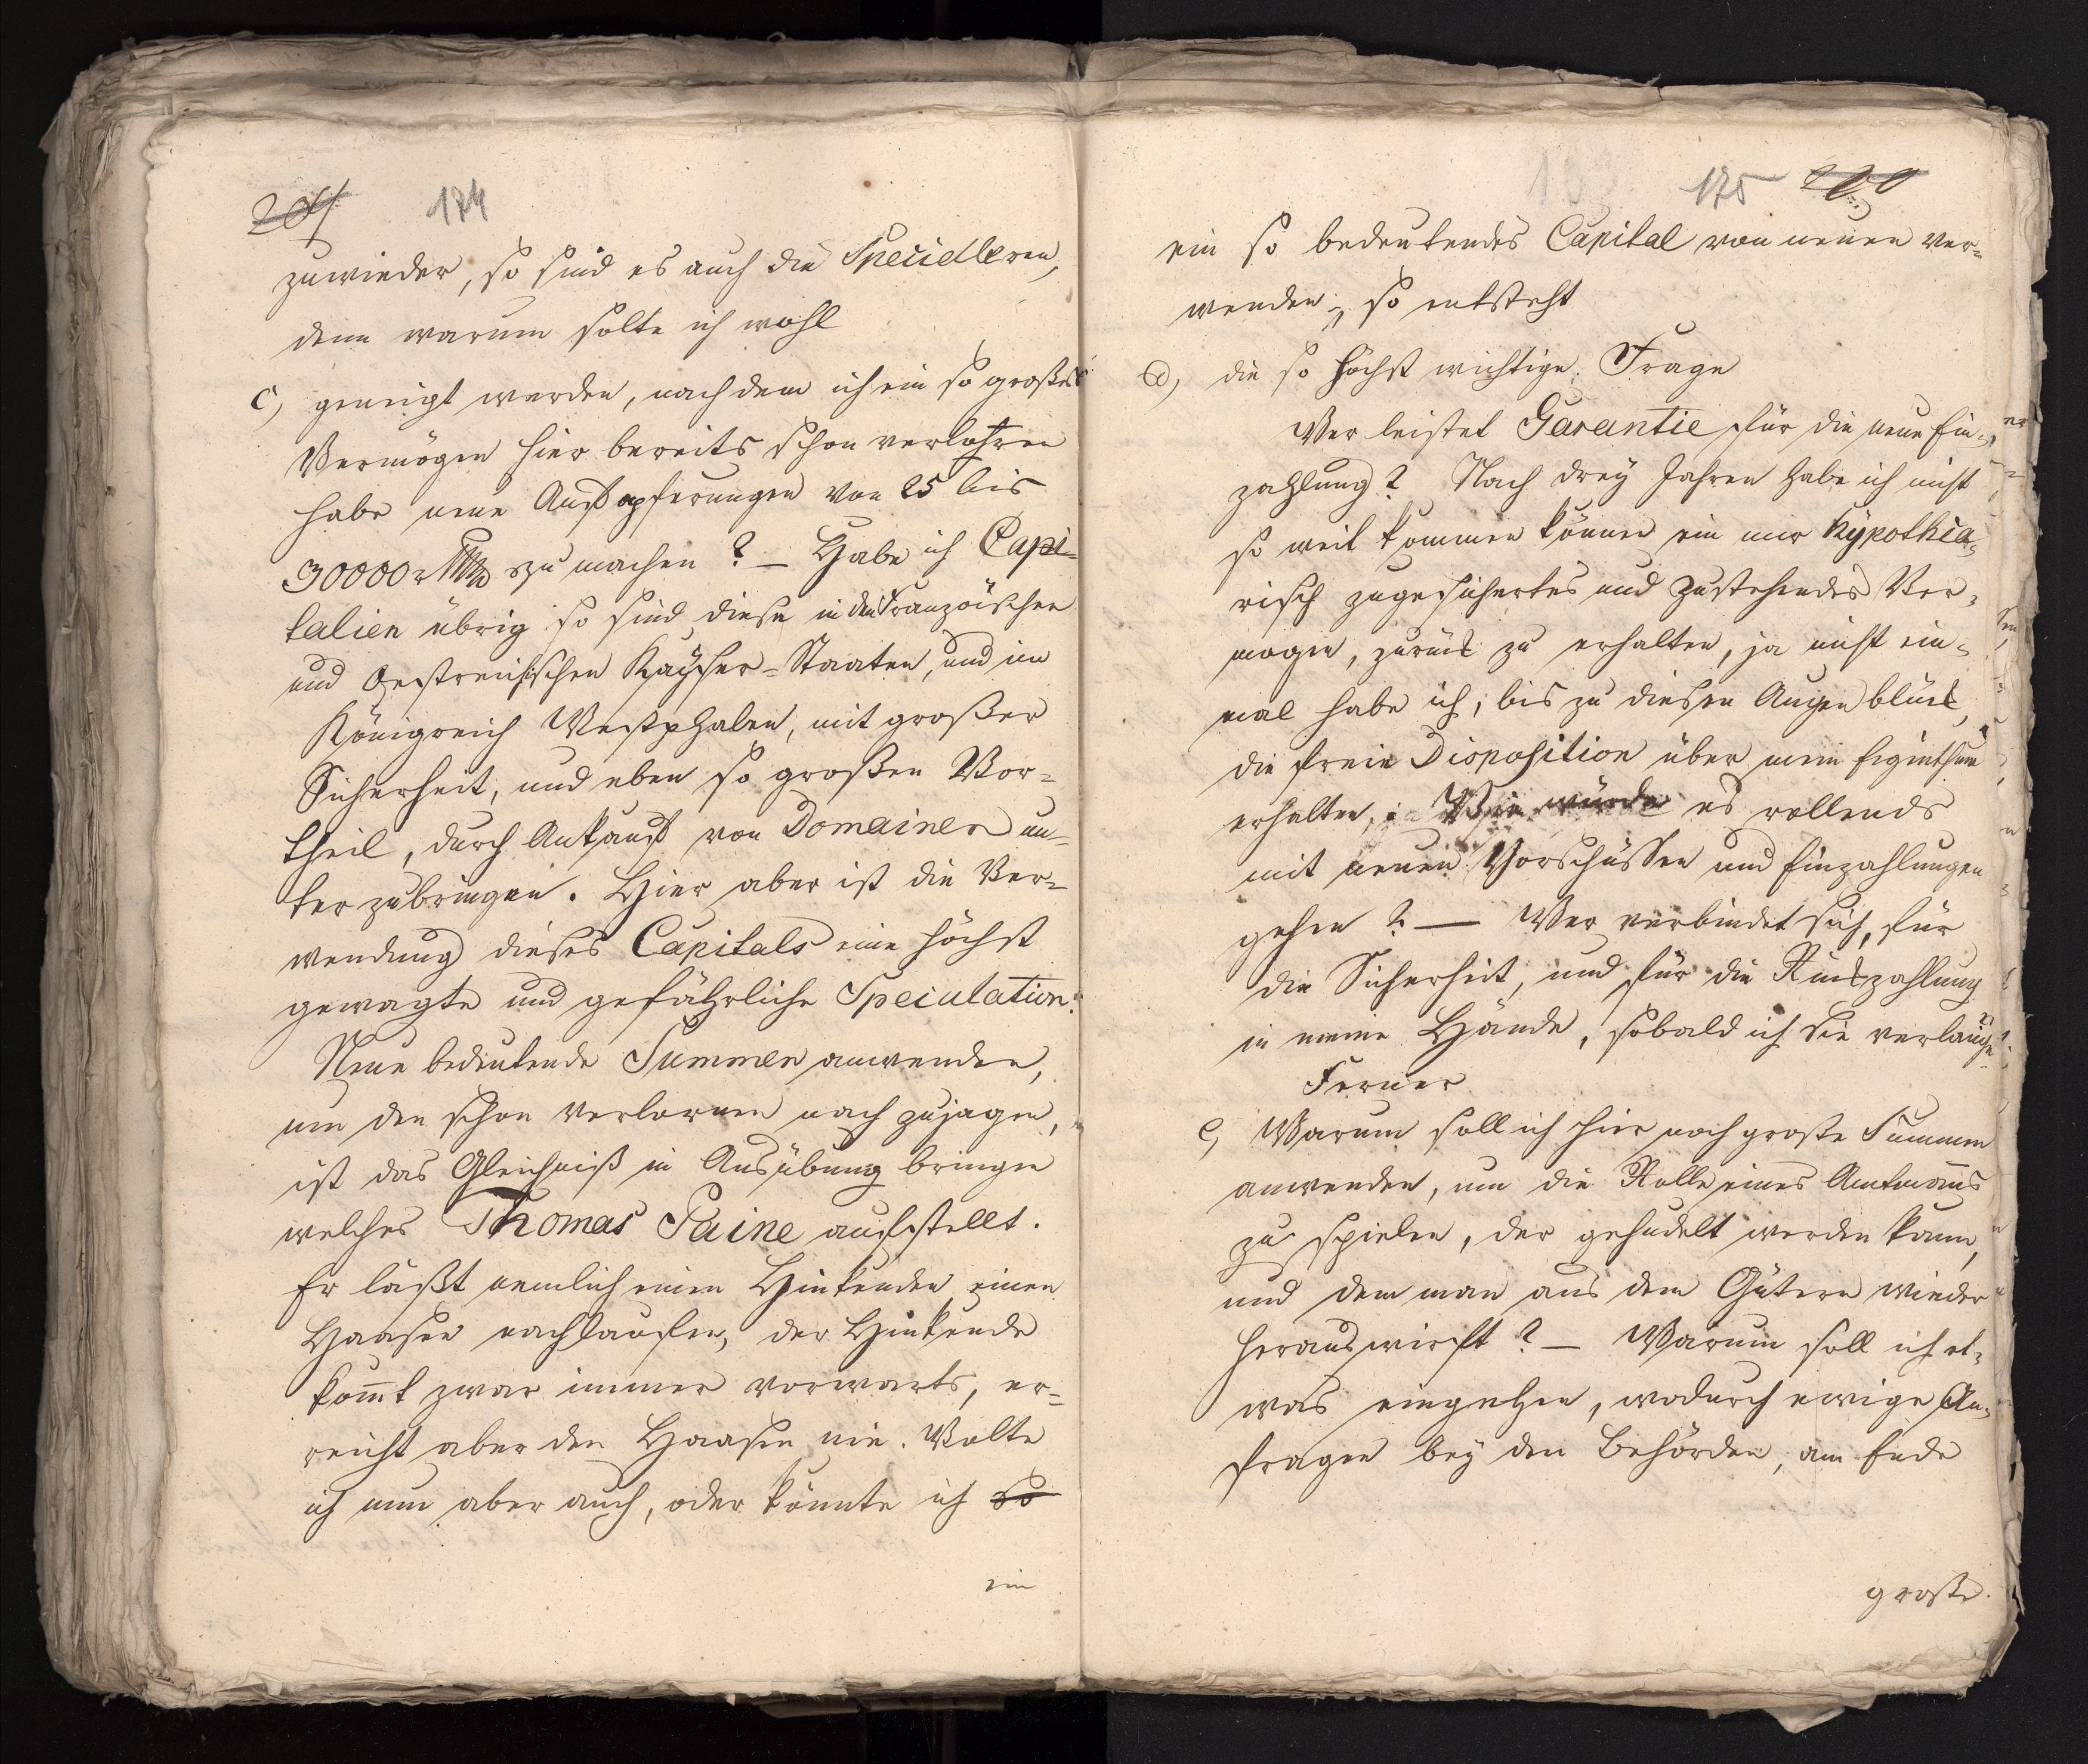 201 174
zuwieder, so sind es auch die Specielleren,
denn warum solte ich wohl
c, geneigt werden, nach dem ich ein so großes
Vermögen hier bereits schon verlohren
habe neue Aufopferungen von 25 bis
30000 r zu machen? — Habe ich Capi-
talien übrig so sind diese in den Französchen
und Oestreichischen Kayser-Staaten, und im
Königreich Westphalen, mit großer
Sicherheit, und eben so großen Vor-
theil, durch Ankauf von Domainen un-
ter zubringen. Hier aber ist die Ver-
wendung dieses Capitals eine höchst
gewagte und gefährliche Speculation.
Neue bedeutende Summen anwenden,
um den schon verlornen nach zujagen,
ist das Gleichniß in Ausübung bringen
welches Thomas Paine aufstellt.
Er läßt nemlich einen Hinkenden einen
Haasen nachlaufen, der Hinkende
kom̅t zwar immer vorwarts, er-
reicht aber den Haasen nie. Wolte
ich nun aber auch, oder könnte ich so
ein
175 200
ein so bedeutendes Capital von neuen ver-
wenden, so entsteht
d, die so höchst wichtige Frage
Wer leistet Garantie für die neue Ein-
zahlung? Nach drey Jahren habe ich nicht
so weit kommen können ein mir hypothea-
risch zugesichertes und zustehendes Ver-
mogen, zurück zu erhalten, ja nicht ein-
mal habe ich, bis zu diesen Augen blick,
die freie Disposition über mein Eigenthum
erhalten, Wie würde es vollends
mit neuen Vorschüssen und Einzahlungen
gehen? — Wer verbindet sich, für
die Sicherheit, und für die Rückzahlung
in meine Hände, sobald ich sie verlange?
Ferner
e, Warum soll ich hier noch große Summen
anwenden, um die Rolle eines Amtman̅s
zu spielen, der gehudelt werden kann,
und dem man aus dem Gütern wieder
herauswirft? — Warum soll ich et-
was eingehen, wodurch ewige An-
fragen bey den Behörden, am Ende
große